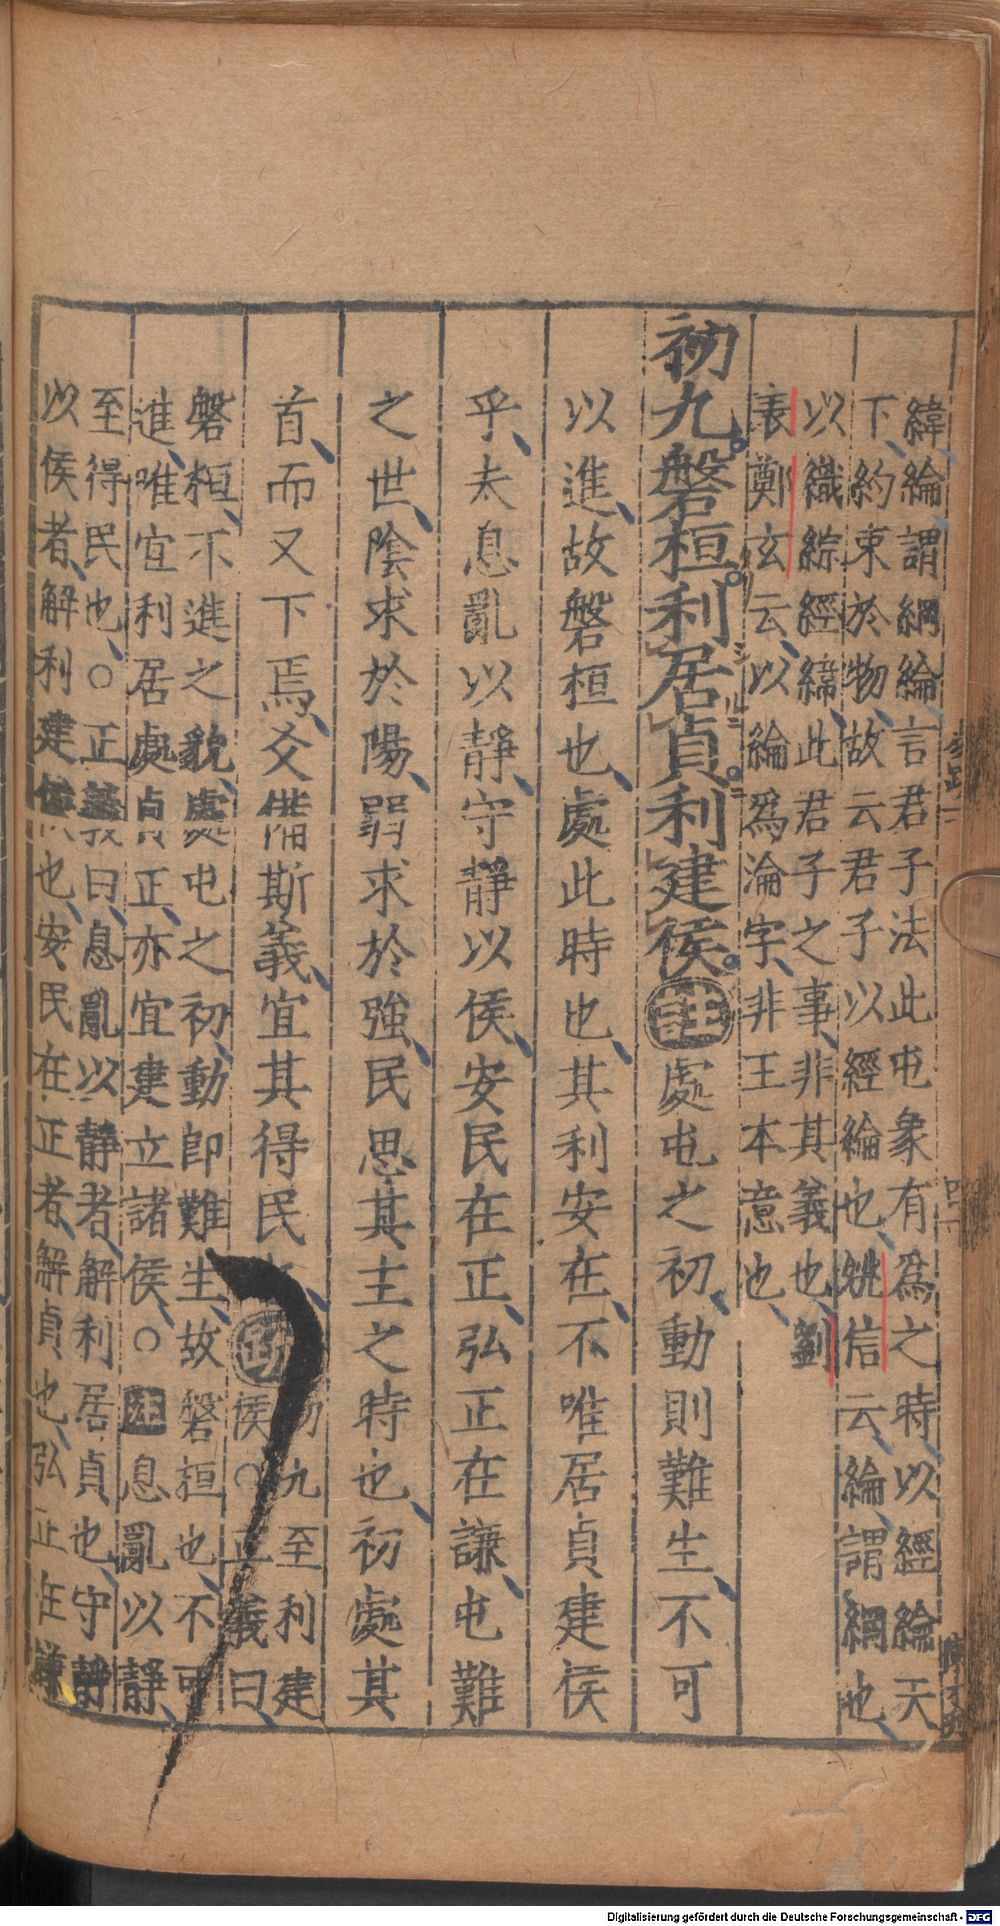 緯綸謂綱綸言君子法此屯象有爲之時以經綸天
下約束於物故云君子以經綸也姚信云綸謂綱也
以織綜經緯此君子之事非其義也劉
表鄭玄云以綸爲淪字非王本意也
初九磐桓利居貞利建侯註處屯之初動則難生不可
以進故磐桓也處此時也其利安在不唯居貞建侯
乎夫息亂以靜守靜以侯安民在正弘正在謙屯難
之世陰求於陽弱求於強民思其主之時也初處其
首而又下焉爻備斯義宜其得民 初九至利建
侯○正義曰
磐桓不進之貌處屯之初動即難生故磐桓也不可
進唯宜利居處貞正亦宜建立諸侯○註息亂以靜
至得民也○正義曰息亂以靜者解利居貞也守靜
以侯者解利建侯也安民在正者解貞也弘正在謙
Digitalisierung gefördert durch die Deutsche Forschungsgemeinschaft - DFG